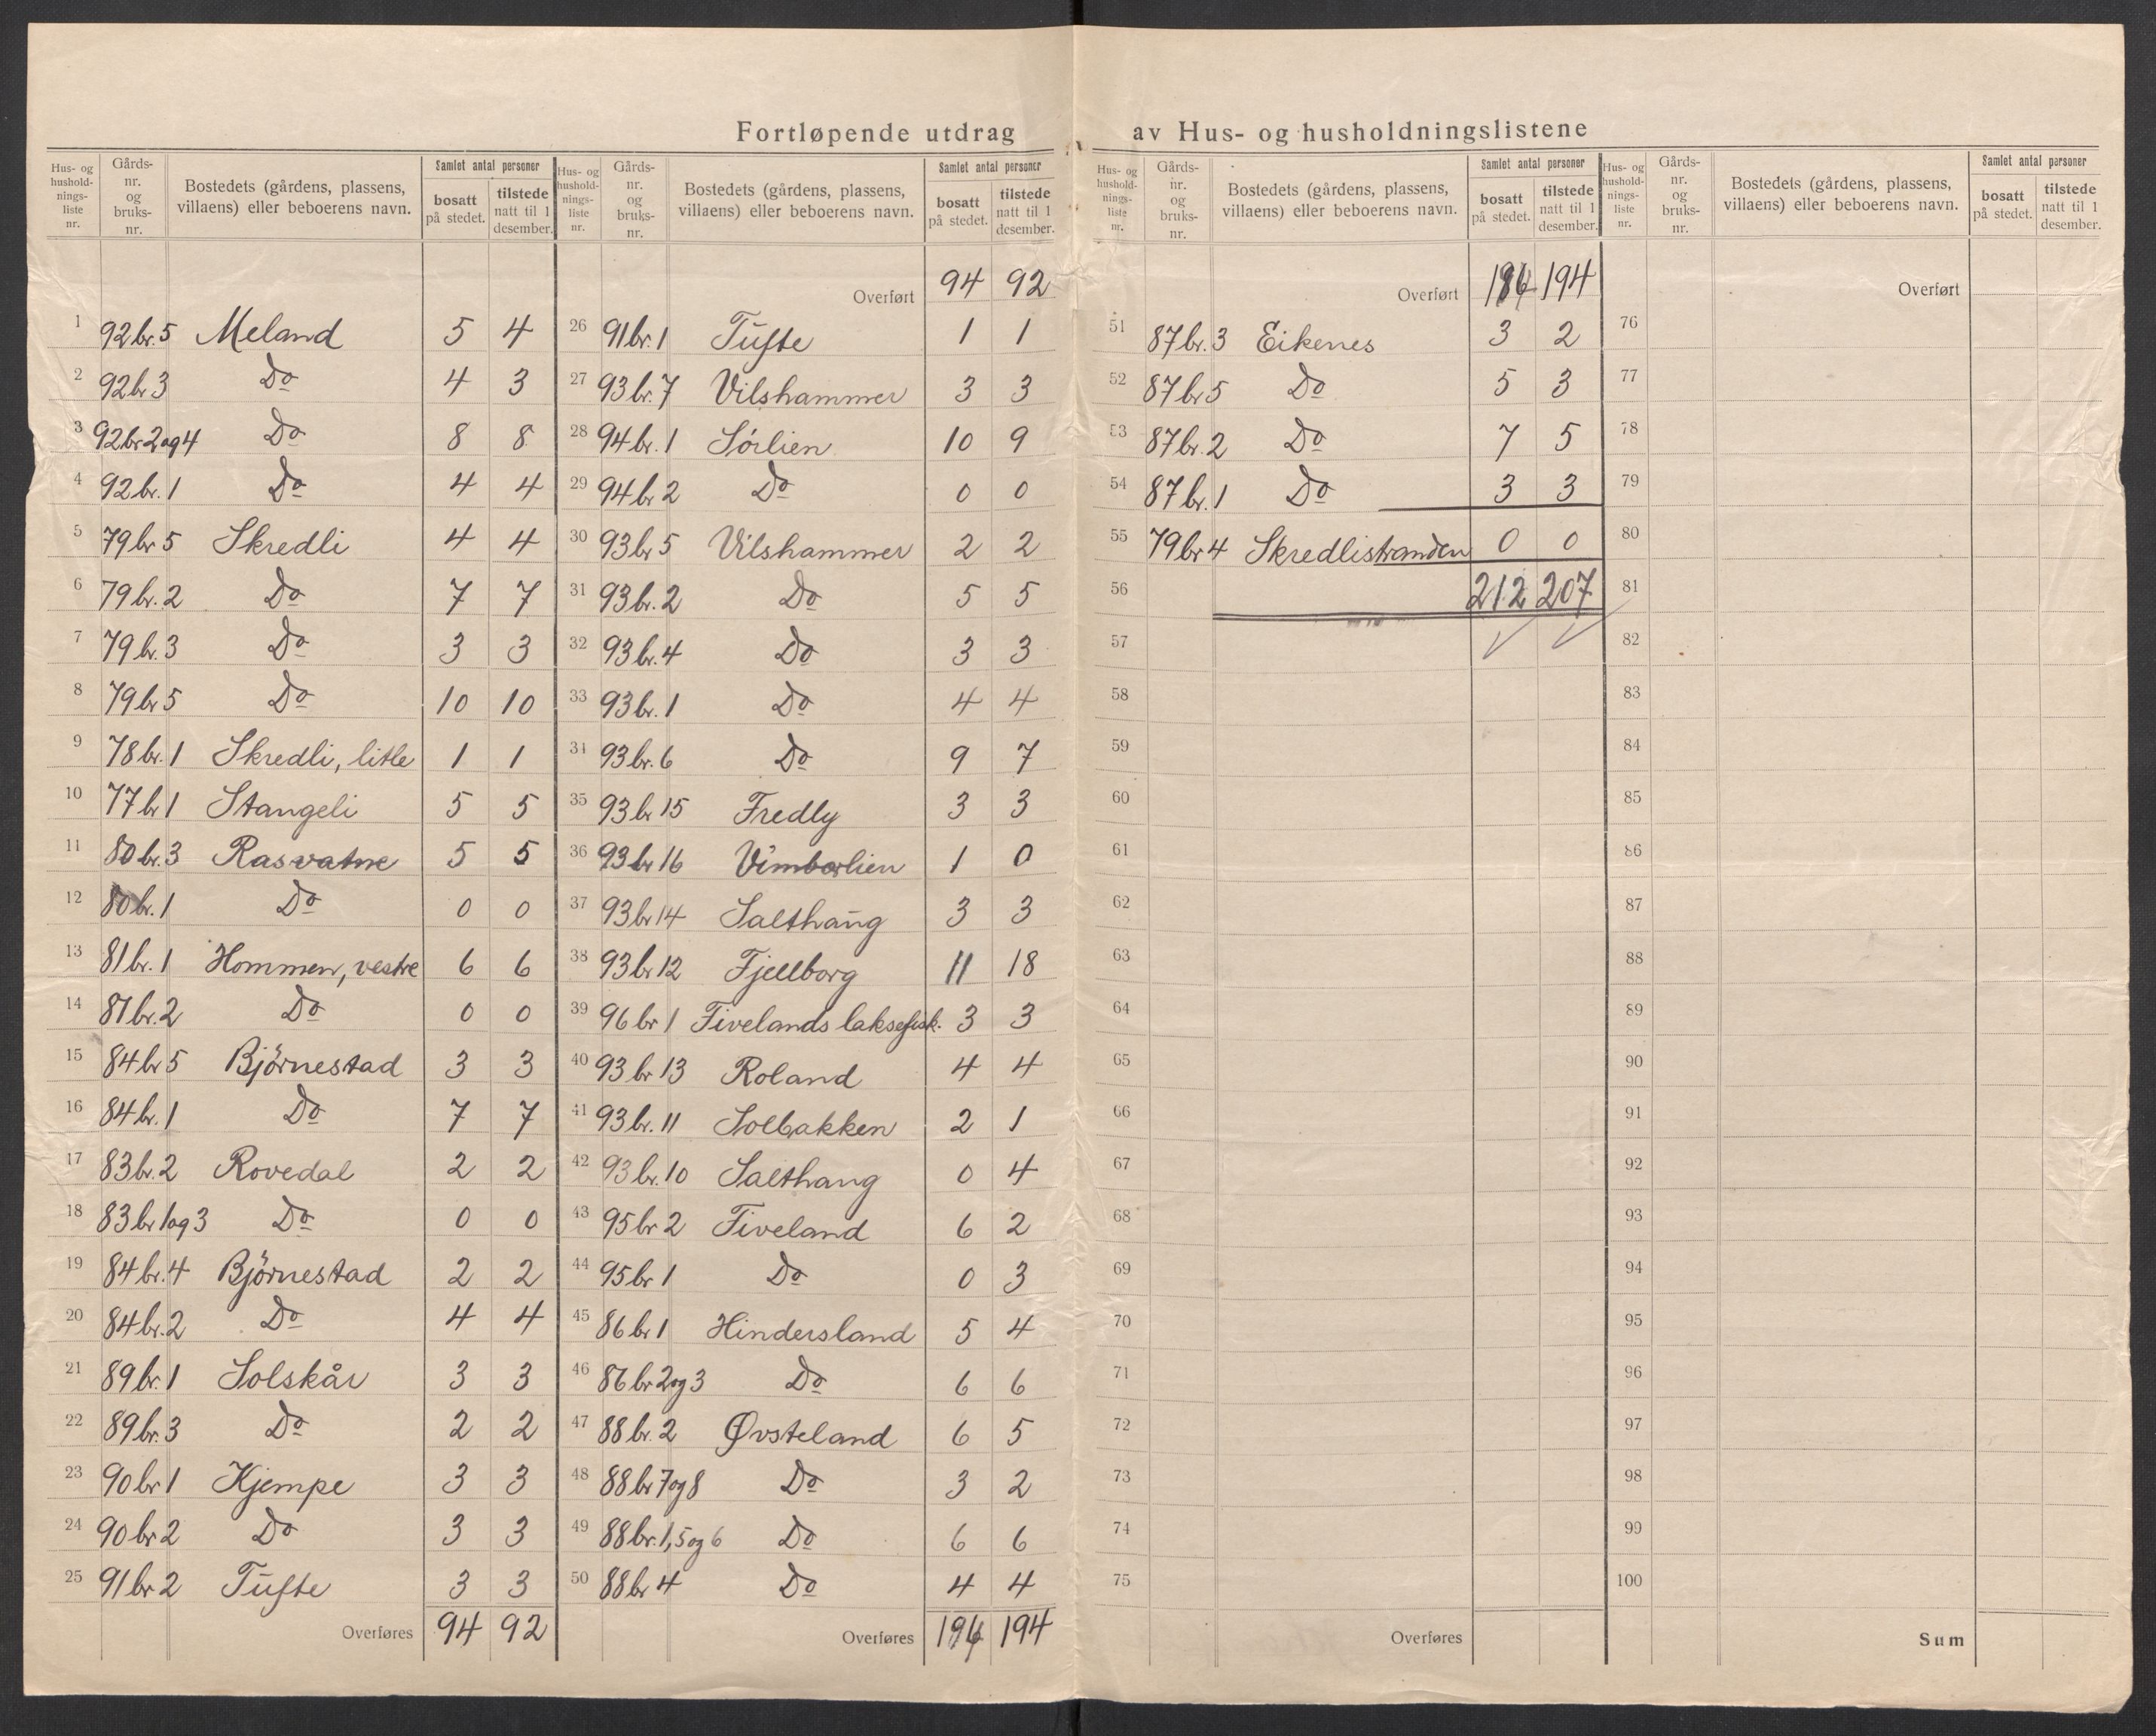 Fortløpende utdrag av Hus- og husholdningslistene
Hus- og hushold-nings-liste nr. | Gårds-nr. og bruks-nr. | Bostedets (gårdens, plassens, villaens) eller beboerens navn. | Samlet antal personer | bosatt på stedet. | tilstede natt til 1 desember.
1 92 br. 5 Meland 5 4
2 92 br 3 Do 4 3
3 92 br 2 og 4 Do 8 8
4 92 br. 1 Do 4 4
5 79 br 5 Skredli 4 4
6 79 br. 2 Do 7 7
7 79 br. 3 Do 3 3
8 79 br 5 Do 10 10
9 78 br. 1 Skredli, litle 1 1
10 77 br 1 Stangeli 5 5
11 80 br. 3 Rasvatne 5 5
12 80 br. 1 Do 0 0
13 81 br. 1 Hommen, vestre 6 6
14 81 br. 2 Do 0 0
15 84 br 5 Bjørnestad 3 3
16 84 br. 1 Do 7 7
17 83 br. 2 Rovedal 2 2
18 83 br 1 og 3 Do 0 0
19 84 br. 4 Bjørnestad 2 2
20 84 br. 2 Do 4 4
21 89 br. 1 Solskår 3 3
22 89 br. 3 Do 2 2
23 90 br 1 Kjempe 3 3
24 90 br 2 Do 3 3
25 91 br 2 Tufte 3 3
Overføres 94 92
Hus- og hushold-nings-liste nr. | Gårds-nr. og bruks-nr. | Bostedets (gårdens, plassens, villaens) eller beboerens navn. | Samlet antal personer | bosatt på stedet. | tilstede natt til 1 desember.
Overført 94 92
26 91 br. 1 Tufte 1 1
27 93 br. 7 Vilshammer 3 3
28 94 br. 1 Sørlien 10 9
29 94 br 2 Do 0 0
30 93 br 5 Vilshammer 2 2
31 93 br. 2 Do 5 5
32 93 br. 4 Do 3 3
33 93 br. 1 Do 4 4
34 93 br. 6 Do 9 7
35 93 br 15 Fredly 3 3
36 93 br 16 Vimborlien 1 0
37 93 br 14 Salthaug 3 3
38 93 br 12 Fjellborg 11 18
39 96 br 1 Fivelands laksefisk. 3 3
40 93 br 13 Roland 4 4
41 93 br. 11 Solbakken 2 1
42 93 br. 10 Salthaug 0 4
43 95 br 2 Fiveland 6 2
44 95 br 1 Do 0 3
45 86 br 1 Hindersland 5 4
46 86 br 2 og 3 Do 6 6
47 88 br. 2 Øvsteland 6 5
48 88 br 7 og 8 Do 3 2
49 88 br. 1, 5 og 6 Do 6 6
50 88 br 4 Do 4 4
Overføres 194 194
Hus- og hushold-nings-liste nr. | Gårds-nr. og bruks-nr. | Bostedets (gårdens, plassens, villaens) eller beboerens navn. | Samlet antal personer | bosatt på stedet. | tilstede natt til 1 desember.
Overført 194
51 87 br. 3 Eikenes 3 2
52 87 br 5 Do 5 3
53 87 br. 2 Do 7 5
54 87 br. 1 Do 3 3
55 79 br 4 Skredlistranden 0 0
56 212 207
57
58
59
60
61
62
63
64
65
66
67
68
69
70
71
72
73
74
75
Overføres
Hus- og hushold-nings-liste nr. | Gårds-nr. og bruks-nr. | Bostedets (gårdens, plassens, villaens) eller beboerens navn. | Samlet antal personer | bosatt på stedet. | tilstede natt til 1 desember.
Overført
76
77
78
79
80
81
82
83
84
85
86
87
88
89
90
91
92
93
94
95
96
97
98
99
100
Sum